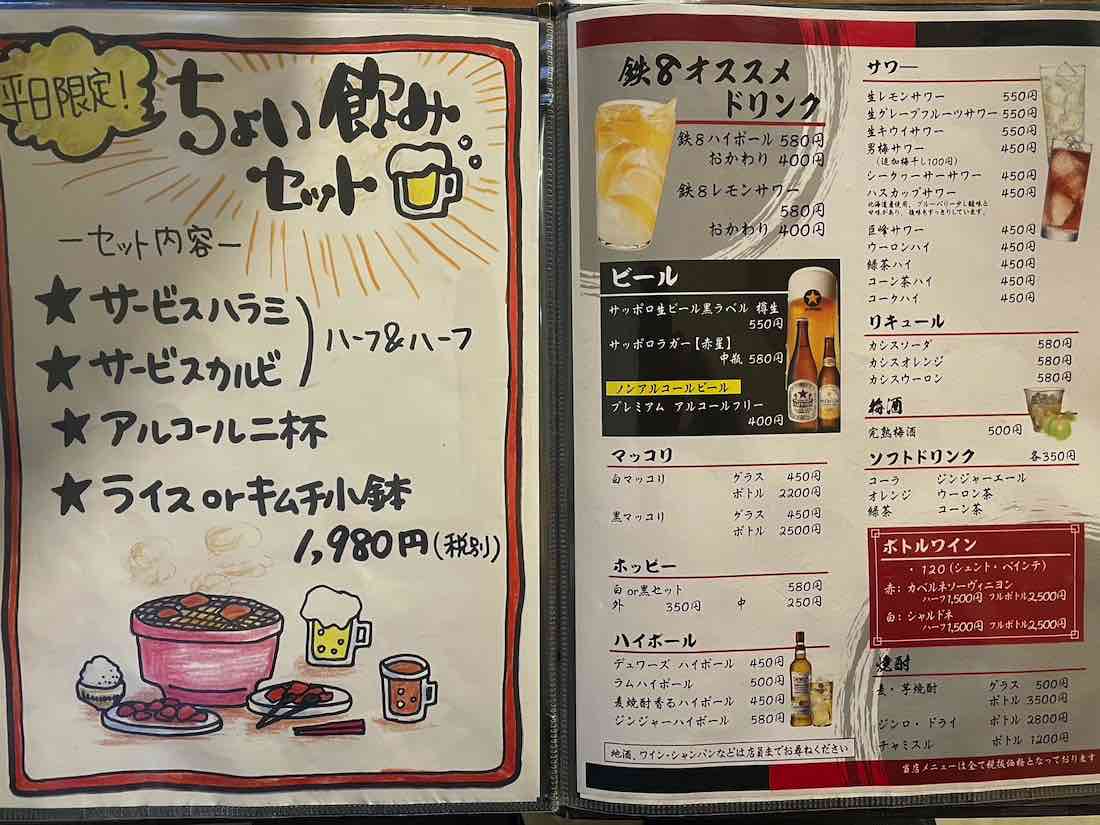 平日限定!
ちょい飲み
セット
ーセット内容ー
★サービスハラミ
★サービスカルビ
ハーフ&ハーフ
★アルコール二杯
★ライスorキムチ小鉢
1,980円(税別)
鉄8オススメ
ドリンク
鉄8ハイボール 580円
おかわり 400円
鉄8レモンサワー
580円
おかわり 400円
ビール
サッポロ生ビール黒ラベル 樽生
550円
サッポロラガー【赤星】
中瓶 580円
ノンアルコールビール
プレミアム アルコールフリー
400円
マッコリ
白マッコリ グラス 450円
ボトル 2200円
黒マッコリ グラス 450円
ボトル 2500円
ホッピー
白or黒セット 580円
外 350円 中 250円
ハイボール
デュワーズ ハイボール 450円
ラムハイボール 500円
麦焼酎香るハイボール 450円
ジンジャーハイボール 580円
地酒、ワイン・シャンパンなどは店員までお尋ねください
サワー
生レモンサワー 550円
生グレープフルーツサワー 550円
生キウイサワー 550円
男梅サワー 450円
(追加梅干し100円)
シークヮーサーサワー 450円
ハスカップサワー 450円
北海道産使用、ブルーベリー少し酸味と
甘味があり、後味もすっきりしています。
巨峰サワー 450円
ウーロンハイ 450円
緑茶ハイ 450円
コーン茶ハイ 450円
コークハイ 450円
リキュール
カシスソーダ 580円
カシスオレンジ 580円
カシスウーロン 580円
梅酒
完熟梅酒 500円
ソフトドリンク 各350円
コーラ ジンジャーエール
オレンジ ウーロン茶
緑茶 コーン茶
ボトルワイン
・120(シェント・ベインテ)
赤:カベルネソーヴィニヨン
ハーフ1,500円 フルボトル2,500円
白:シャルドネ
ハーフ1,500円 フルボトル2,500円
焼酎
麦・芋焼酎 グラス 500円
ボトル 3500円
ジンロ・ドライ ボトル 2800円
チャミスル ボトル 1200円
当店メニューは全て税抜価格となっております